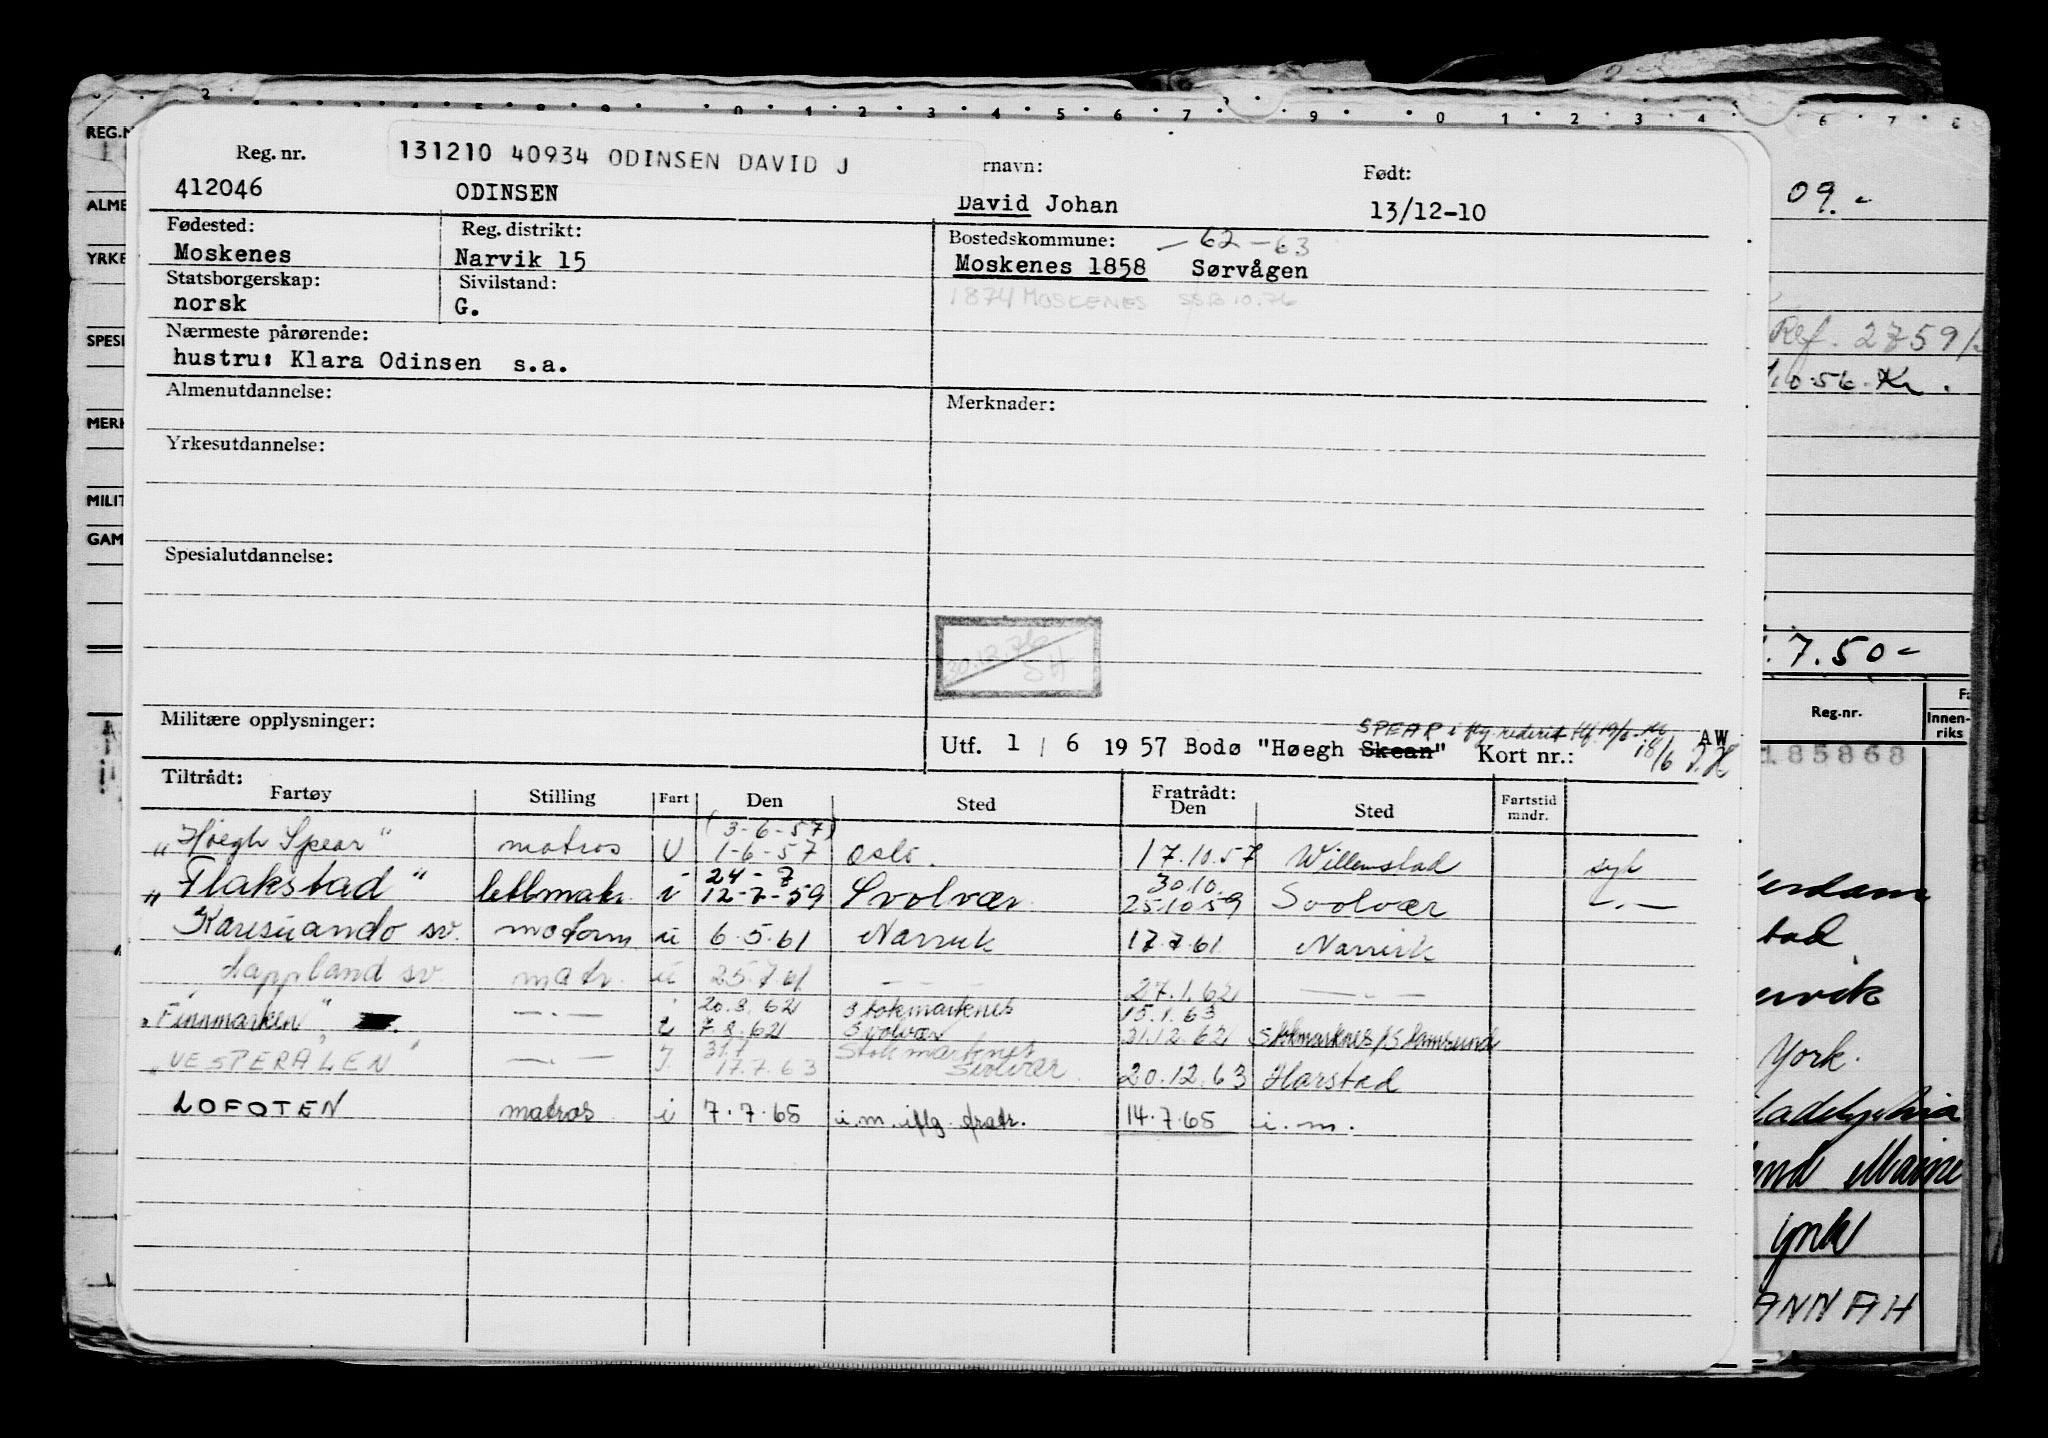 131210 40934 ODINSEN DAVID J
Reg. nr.
rnavn:
Født:
412046 ODINSEN David Johan 13/12-10
Fødested: Reg. distrikt: Bostedskommune: — 62 — 63
Moskenes Narvik 15 Moskenes 1858 Sørvågen
Statsborgerskap: Sivilstand: 1874 MOSKENES SSB 10.76
norsk G.
Nærmeste pårørende:
hustru: Klara Odinsen s.a.
Almenutdannelse: Merknader:
Yrkesutdannelse:
Spesialutdannelse:
20.12.76
SH
Militære opplysninger:
SPEAR i flg rederiet
Utf. 1 / 6 1957 Bodø "Høegh Skean" Kort nr.: 18/6 AW
Tiltrådt: Fratrådt:
Fartøy Stilling Fart Den Sted Den Sted Fartstid mndr.
(3-6-57)
"Høegh Spear" matros U 1-6-57 Oslo. 17.10.57 Willemstad syk
24-7 30.10.
"Flakstad" lettmatr. i 12-7-59 Svolvær 25.10.59 Svolvær —.—
Karesuando sv. matros u 6.5.61 Narvik 17.7.61 Narvik
Lappland sv. matr. u 25.7.61 — — — 27.1.62 — . —
20.3.62 Stokmarknes 15.1.63
"Finnmarken" —.— i 7.8.62 Svolvær 31.12.62 Stokmarknes/Stamsund
31.7 Stokmarknes
"VESTERÅLEN" —.— I. 17.7.63 Svolvær 20.12.63 Harstad
LOFOTEN matros i 7.7.65 i.m. iflg. fratr. 14.7.65 i.m.
REG.N
ALME
YRKE
SPESI
MERK
MILIT
GAM
09.-
Ref. 2759/
10.56. Kr.
.7.50-
Reg.nr. Innen-
riks
185868
erdam
stad
rvik
York.
ladelphia
and Maine
ynk
ANNAH